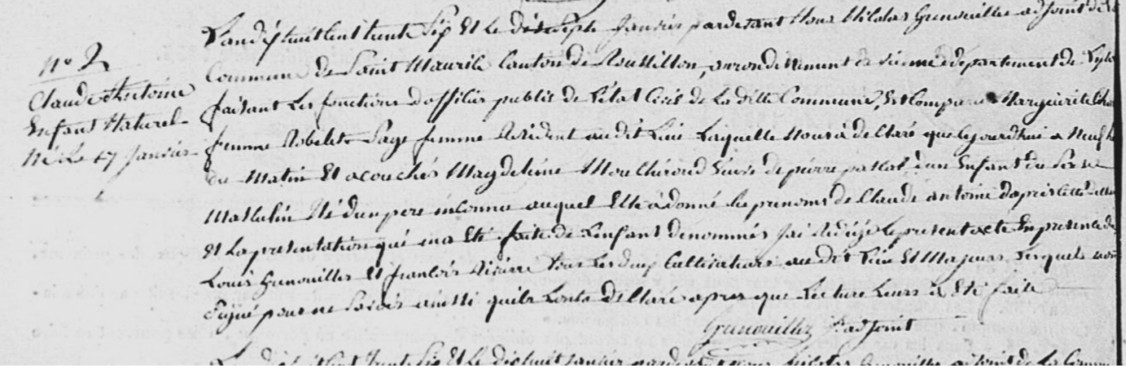 N° 2
Claude Antoine
Enfant Naturel
Né Le 17 Janvier
L'an dix huit Cent trente Six Et Le dix Sept Janvier pardevant Nous Nicolas Grenouiller adjoint de la
Commune de Saint Maurice Canton de Roussillon, arrondissement de vienne departement de
faisant Les fonctions d'officier public de L'état Civil de La ditte Commune, Est Comparu Marguerite
femme Robelet Sage femme Résident au dit Lieu Laquelle Nous à declaré que Cejourdhui a Neuf
du Matin Et acouchés Magdeleine veuve de pierre un Enfant du Sexe
Masculin Né d'un pere inconnu auquel Elle à donné les prenoms de Claude antoine dapris Cette
Et La presentation qui ma Eté faite de L'enfant denommés J'ai Rédigé Le present acte En presence de
Louis Grenouiller Et francois tous Les deux Cultivateurs au dit Lieu Et Majeurs Lesquels
Signé pour ne Savoir ainsi quils Lont declaré apres que Lecture Leurs à Eté faite
Grenouiller L'adjoint
L'an dix huit Cent trente Six Et Le dix huit Janvier pardevant Nous Nicolas Grenouiller adjoint de La Commune